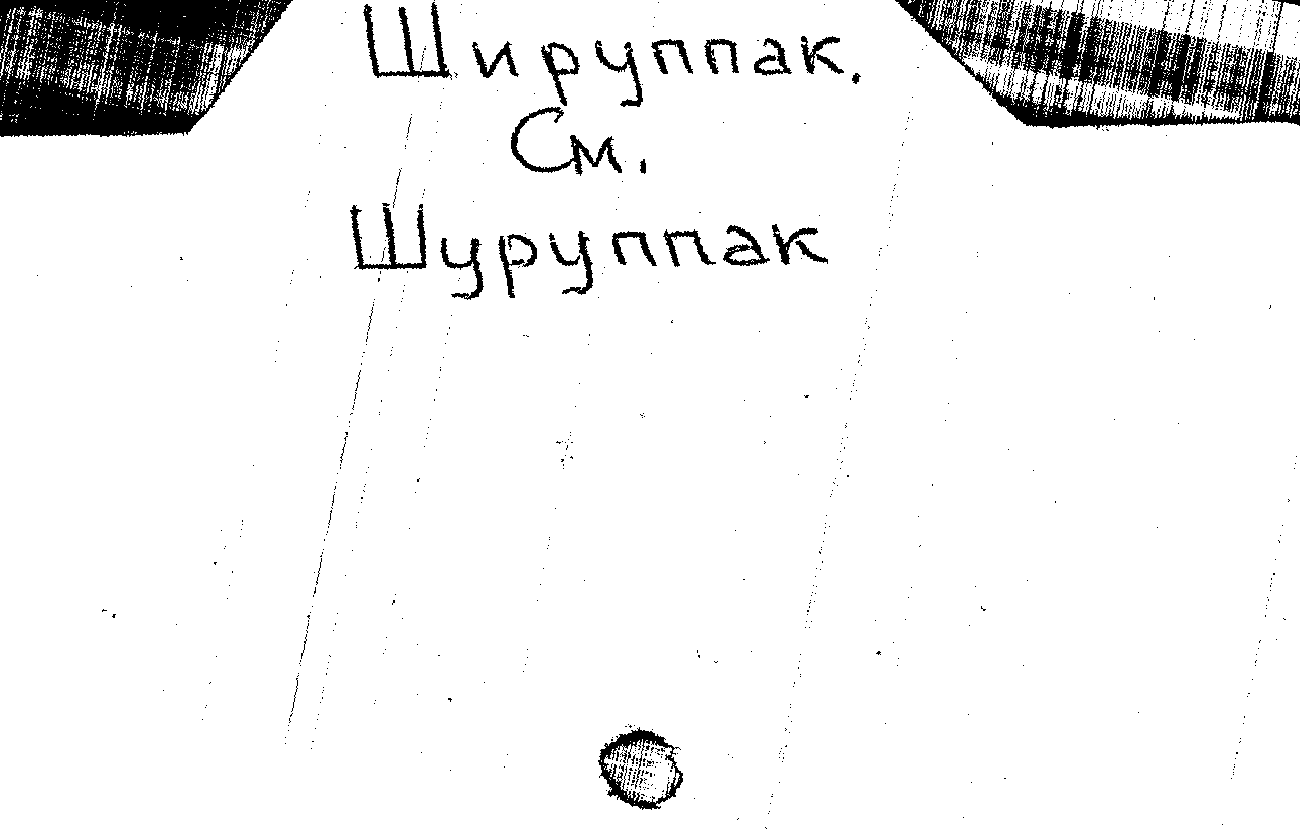 Шируппак.
См.
Шуруппак